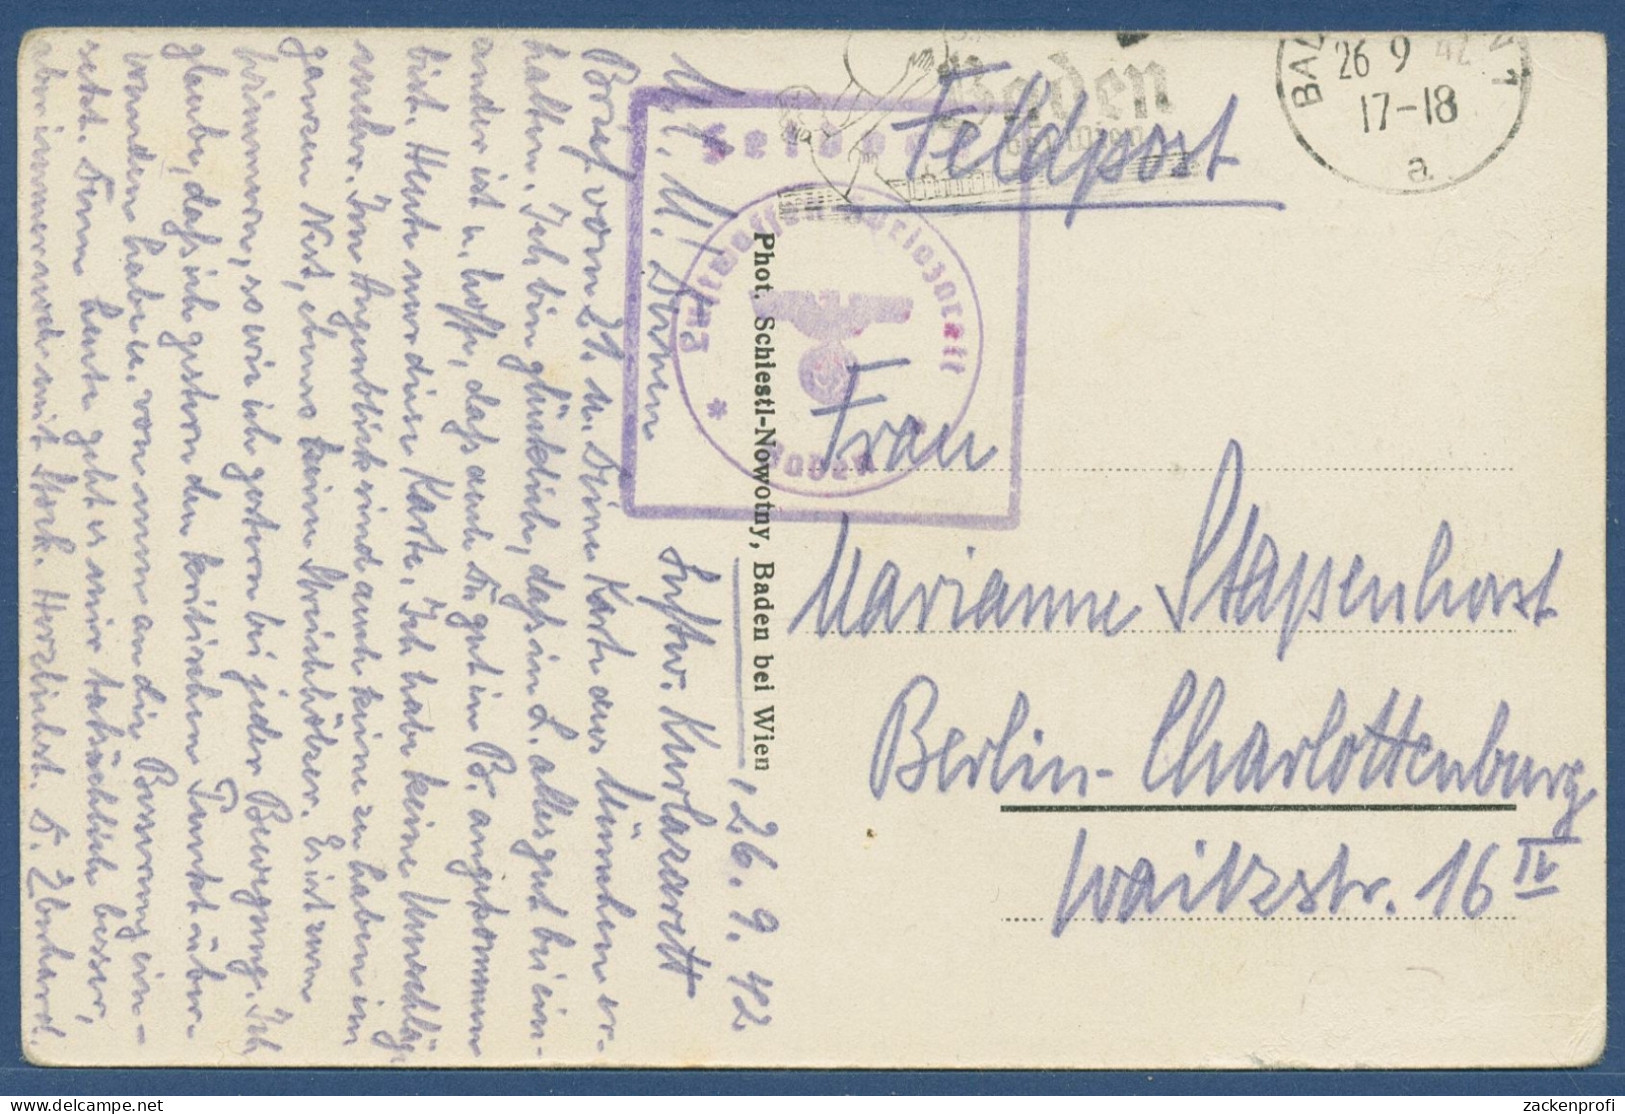 Feldpost
Baden
bei Wien
26 9 42
17-18
a
Luftwaffen-Kurlazarett
Baden
Phot. Schiestl-Nowotny, Baden bei Wien
Frau
Marianne Stapenhorst
Berlin-Charlottenburg
Waitzstr. 16 IV
, 26. 9. 42
Luftw. Kurlazarett
M. l. M.! Deinen
Brief vom 21. u. Deine Karte aus München er-
halten. Ich bin glücklich, daß in L. alles gut bei ein-
ander ist u. hoffe, daß auch Du gut in B. angekommen
bist. Heute nur diese Karte. Ich habe keine Umschläge
mehr. Im Augenblick sind auch keine zu haben im
ganzen Nest, ebenso keine Streichhölzer. Es ist zum
wimmern, so wie ich gestern bei jeder Bewegung. Ich
glaube, daß ich gestern den kritischen Punkt über-
wunden habe u. von nun an die Besserung ein-
setzt. Denn heute geht es mir tatsächlich besser,
aber immer noch mit Stock. Herzlichst. D. Eberhard.